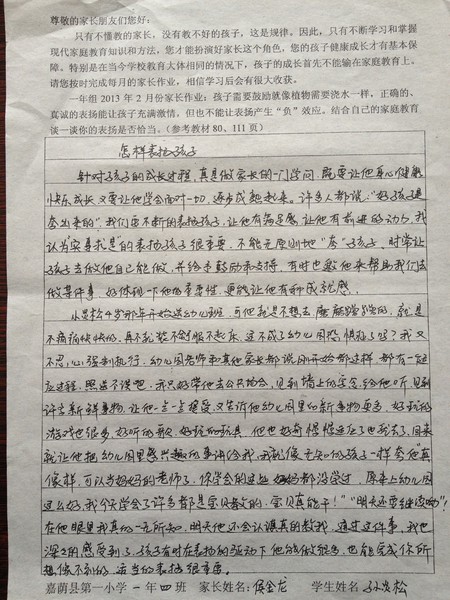 尊敬的家长朋友们您好：
只有不懂教的家长，没有教不好的孩子，这是规律。因此，只有不断学习和掌握
现代家庭教育知识和方法，您才能扮演好家长这个角色，您的孩子健康成长才有基本保
障。特别是在当今学校教育大体相同的情况下，孩子的成长首先不能输在家庭教育上。
请您按时完成每月的家长作业，相信学习后会有很大收获。
一年组 2013 年 2 月份家长作业：孩子需要鼓励就像植物需要浇水一样，正确的、
真诚的表扬能让孩子充满激情。但也不能让表扬产生“负”效应。结合自己的家庭教育
谈一谈你的表扬是否恰当。（参考教材 80、111 页）
怎样表扬孩子
针对孩子的成长过程，真是做家长的一门学问，既要让他身心健康
快乐成长，又要让他学会面对一切，逐步成熟起来。许多人都说：“好孩子是
夸出来的”，我们要不断的表扬孩子，让他有荣誉感，让他有前进的动力，我
认为“实事求是”的表扬孩子很重要，不能无原则地“夸”孩子，时常让
孩子去做他自己能做，并给予鼓励和支持，有时也要他来帮助我们去
做某件事，好体现一下他的重要性，更能让他有种成就感。
小 4岁那年开始送幼儿班，可他就是不想去，磨磨蹭蹭的，就是
不痛痛快快的，再不就装不舒服不起床，这不成了幼儿园恐惧症了吗？我又
不忍心强制执行，幼儿园老师和其他家长都说刚开始都这样，都有一
应过程，照送不误吧，我只好带他去公共场合，见到墙上的字念给他听，见到
许多新鲜事物，让他一点一点接受，又告诉他幼儿园里的新事物更多，好玩的
游戏也很多，好听的歌，好玩的玩具，他也好奇 了也就去了，回来
就让他把幼儿园里感兴趣的事讲给我，我就像无知的孩子一样夸他真
像样，可以当妈妈的老师了，你学会的这些妈妈都没学过，原来幼儿园
这么好，我今天学会了许多都是宝贝教的，宝贝真能干！”“明天还要继续哟”！
在他眼里我真的一无所知，明天他还会认认真真的教我，通过这件事，我也
深深的感受到了，孩子有时在表扬的驱动下他能做很多，也能完成你所
想像不到的，适当的表扬很重要。
嘉荫县第一小学 一 年 四 班 家长姓名：侯金龙 学生姓名